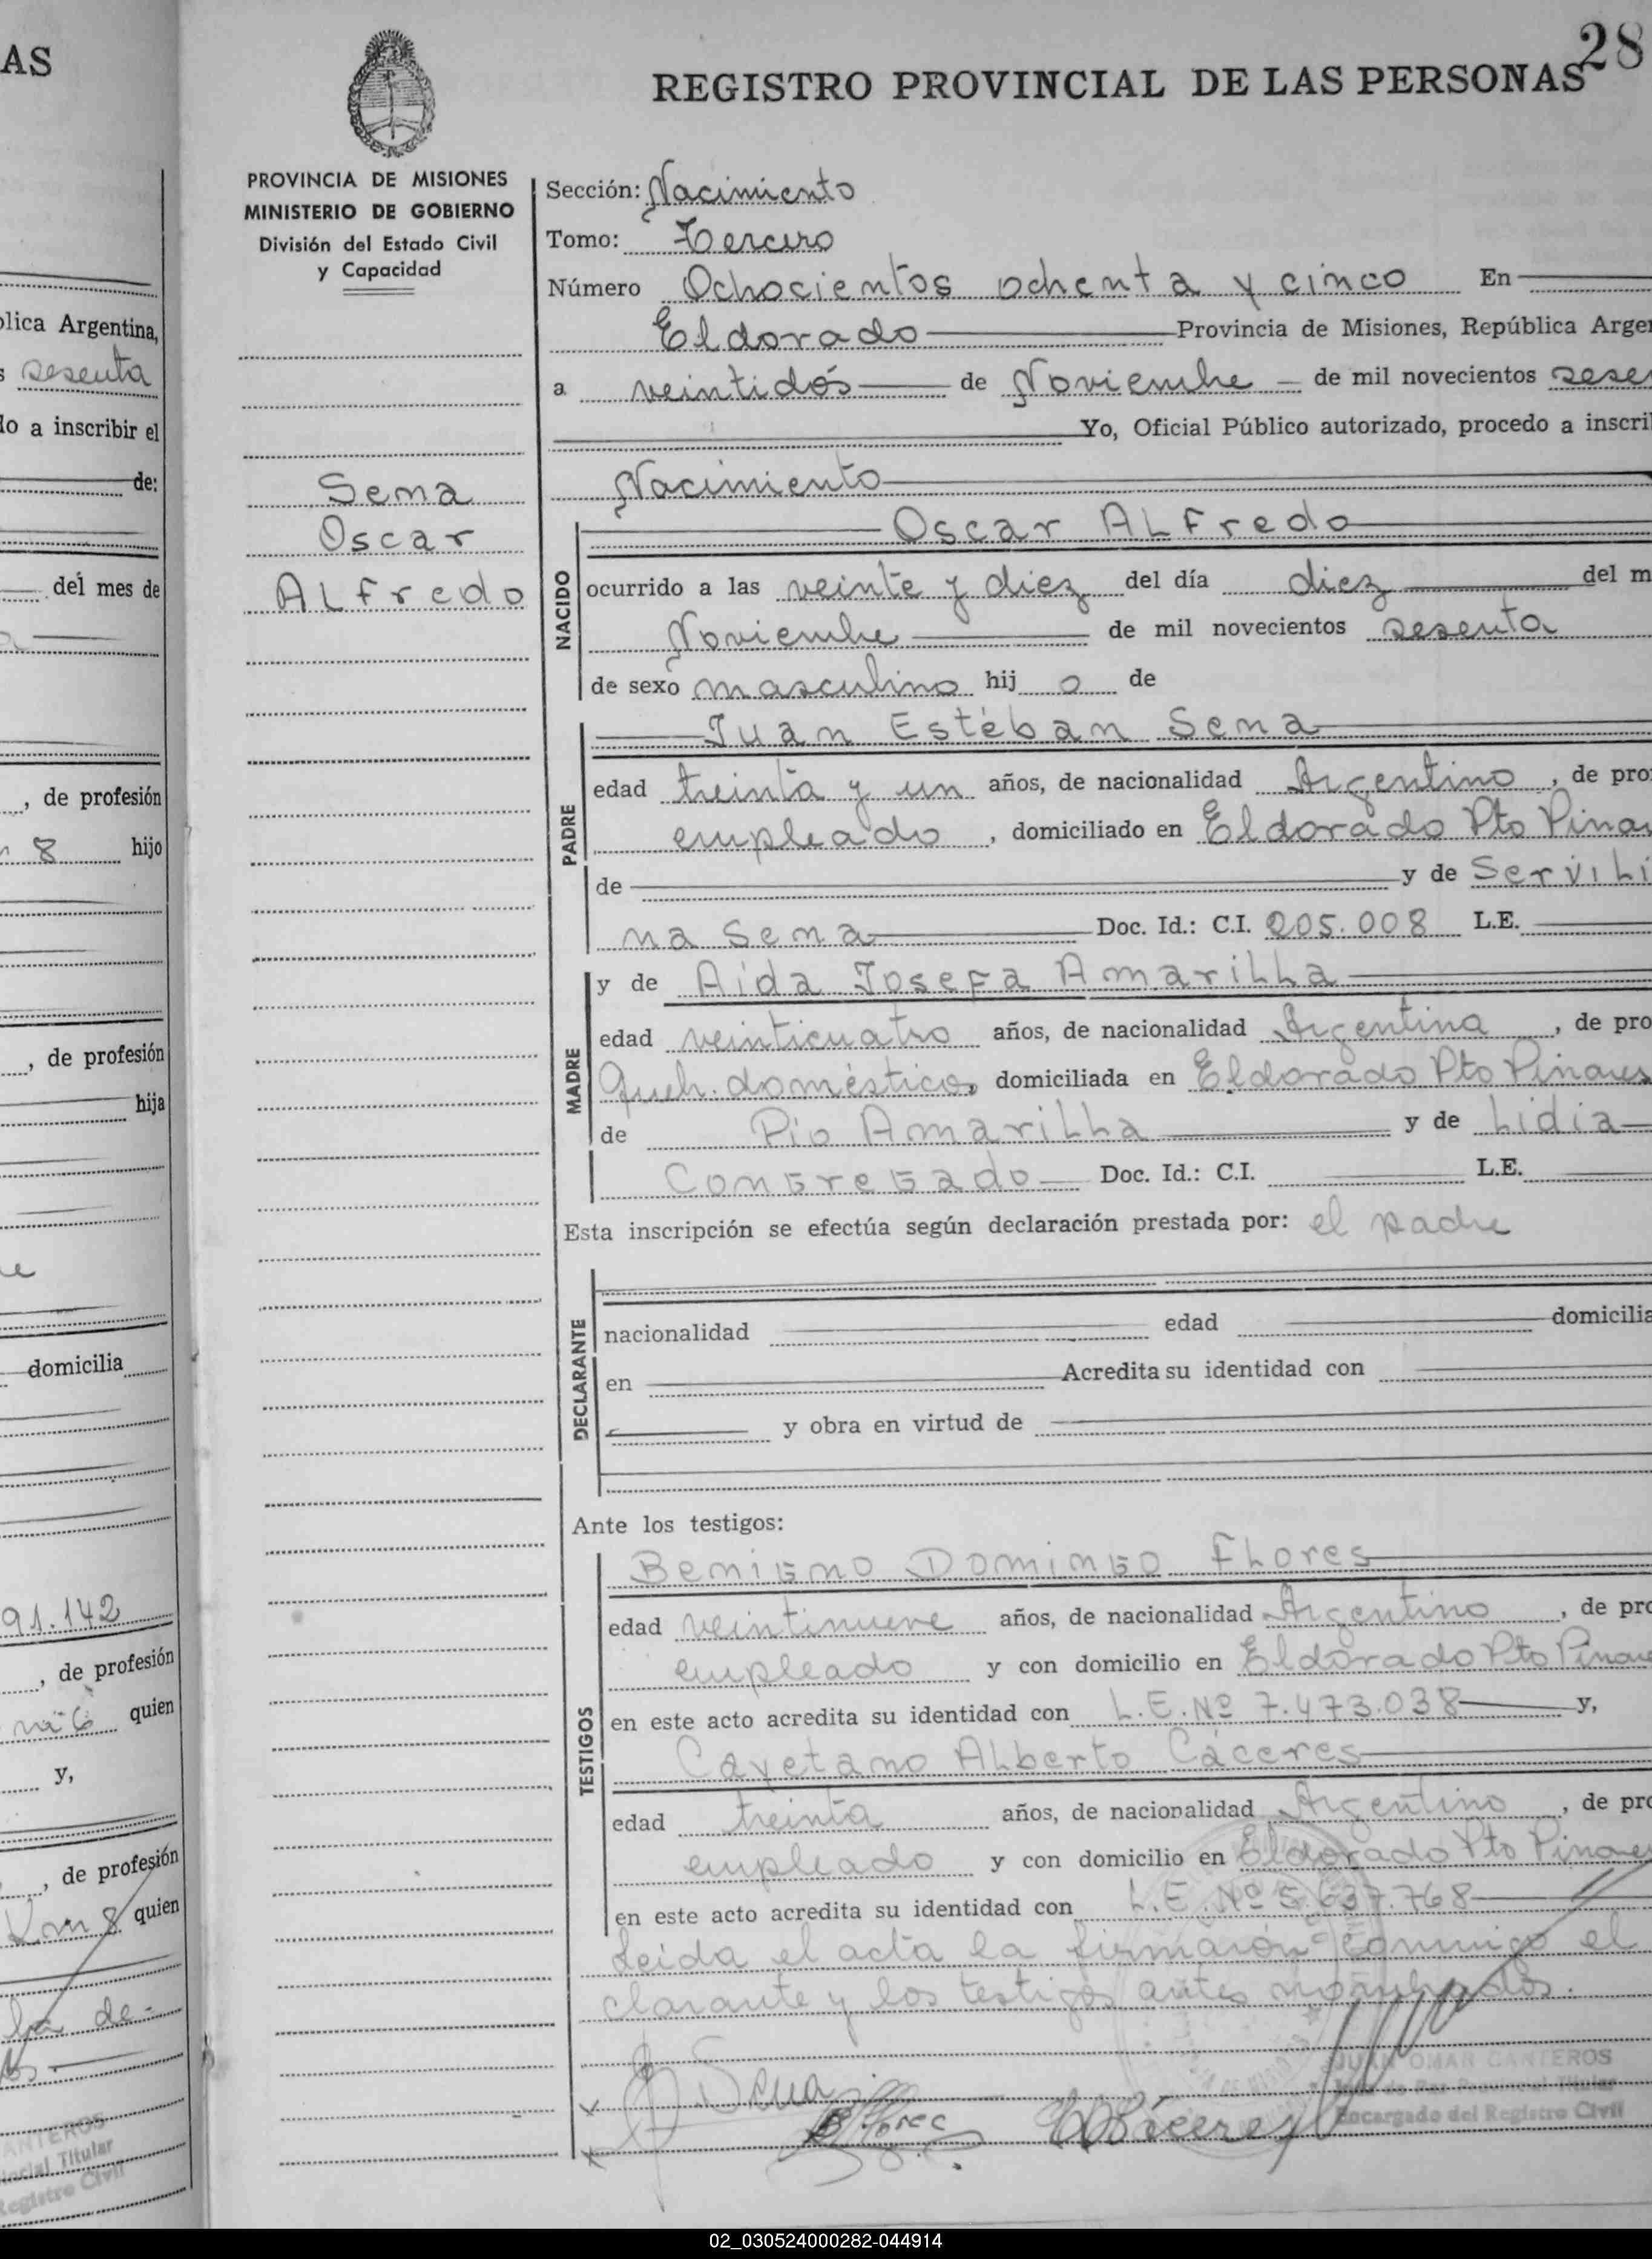 AS
28
REGISTRO PROVINCIAL DE LAS PERSONAS
PROVINCIA DE MISIONES
MINISTERIO DE GOBIERNO
División del Estado Civil
y Capacidad
Sección: Nacimiento
Tomo: Tercero
Número Ochocientos ochenta y cinco En
Eldorado Provincia de Misiones, República Arge
a veintidós de Noviembre de mil novecientos sese
Yo, Oficial Público autorizado, procedo a inscri
Nacimiento
Sena
Oscar
Alfredo
NACIDO
Oscar Alfredo
ocurrido a las veinte y diez del día diez del m
Noviembre de mil novecientos sesenta
de sexo masculino hij o de
PADRE
Juan Estéban Sena
edad treinta y un años, de nacionalidad Argentino, de pro
empleado, domiciliado en Eldorado Pto Pina
de y de Servili
na Sena Doc. Id.: C.I. 205.008 L.E.
MADRE
y de Aída Josefa Amarilla
edad veinticuatro años, de nacionalidad Argentina, de pro
Queh. doméstico, domiciliada en Eldorado Pto Pinares
de Pío Amarilla y de Lidia
Congregado Doc. Id.: C.I. L.E.
Esta inscripción se efectúa según declaración prestada por: el padre
DECLARANTE
nacionalidad edad domicilia
en Acredita su identidad con
y obra en virtud de
Ante los testigos:
TESTIGOS
Benigno Domingo Flores
edad veintinueve años, de nacionalidad Argentino, de pro
empleado y con domicilio en Eldorado Pto Pinare
en este acto acredita su identidad con L.E. Nº 7.473.038 y,
Cayetano Alberto Cáceres
edad treinta años, de nacionalidad Argentino, de pro
empleado y con domicilio en Eldorado Pto Pinares
en este acto acredita su identidad con L.E. Nº 5.637.768
Leida el acta la firmarón conmigo el
clarante y los testigos antes nombrados.
J Sena
B Flores
Cáceres
JUAN OMAR CANTEROS
Encargado del Registro Civil
blica Argentina,
s sesenta
do a inscribir el
de:
del mes de
, de profesión
8 hijo
, de profesión
hija
domicilia
91.142
, de profesión
quien
y,
, de profesión
Km 8 quien
de-
ANTEROS
incial Titular
Registro Civil
02_030524000282-044914